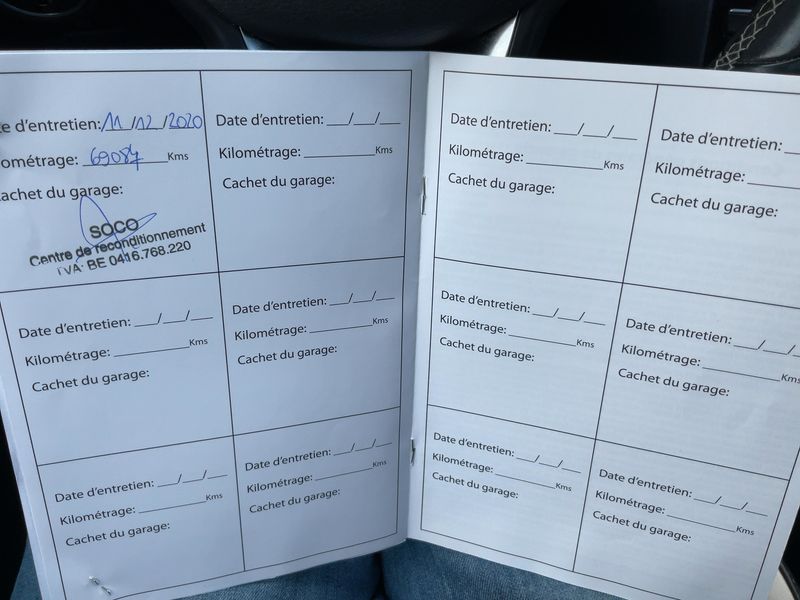 e d'entretien: 11/12/2020
ométrage: 69087 Kms
achet du garage:
SOCO
Centre de reconditionnement
TVA: BE 0416.768.220
Date d'entretien: __/__/__
Kilométrage: ________Kms
Cachet du garage:
Date d'entretien: __/__/__
Kilométrage: ________Kms
Cachet du garage:
Date d'entretien: __/__/__
Kilométrage: ________Kms
Cachet du garage:
Date d'entretien: __/__/__
Kilométrage: ________Kms
Cachet du garage:
Date d'entretien: __/__/__
Kilométrage: ________Kms
Cachet du garage:
Date d'entretien: __/__/__
Kilométrage: ________Kms
Cachet du garage:
Date d'entretien: __
Kilométrage: ________
Cachet du garage:
Date d'entretien: __/__/__
Kilométrage: ________Kms
Cachet du garage:
Date d'entretien: __/__/
Kilométrage: ________Kms
Cachet du garage:
Date d'entretien: __/__/__
Kilométrage: ________Kms
Cachet du garage:
Date d'entretien: __/__/__
Kilométrage: ________Kms
Cachet du garage: